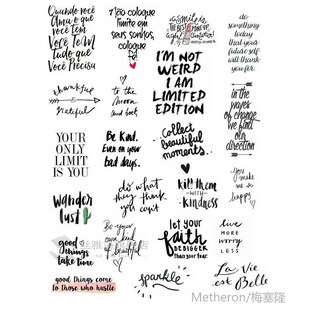 Quando você
Ama o que
você tem
Você Tem
Tudo que
Você Precisa
Não coloque
limite em
seus sonhos,
coloque
fé
a Smile is
the best
I'M NOT
WEIRD
I AM
LIMITED
EDITION
do
something
today
that your
future self
will thank
you for.
thankful
&
grateful
to the
moon
and back
in the
waves
of change
we find
our
direction
YOUR
ONLY
LIMIT
IS YOU
Be Kind.
Even on your
bad days.
Collect
beautiful
moments.
wander
lust
do what
they think
you can't
kill them
with
kindness
you
make me
so
happy
good
things
take time
Be your
own kind
of
beautiful
let your
faith
BE BIGGER
Than your fear.
live
MORE
worry
LESS
good things come
to those who hustle
sparkle
La Vie
est Belle
Metheron/梅塞隆